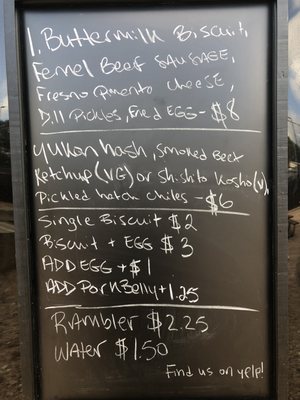 1. Buttermilk Biscuit,
Fennel Beef SAUSAGE,
Fresno Pimento Cheese,
Dill Pickles, Fried EGG - $8
Yukon hash, smoked Beet
Ketchup (VG) or Shishito Kosho (V),
Pickled hatch chiles - $6
Single Biscuit $2
Biscuit + EGG $3
ADD EGG + $1
ADD Pork Belly + 1.25
RAmbler $2.25
WAter $1.50
Find us on yelp!